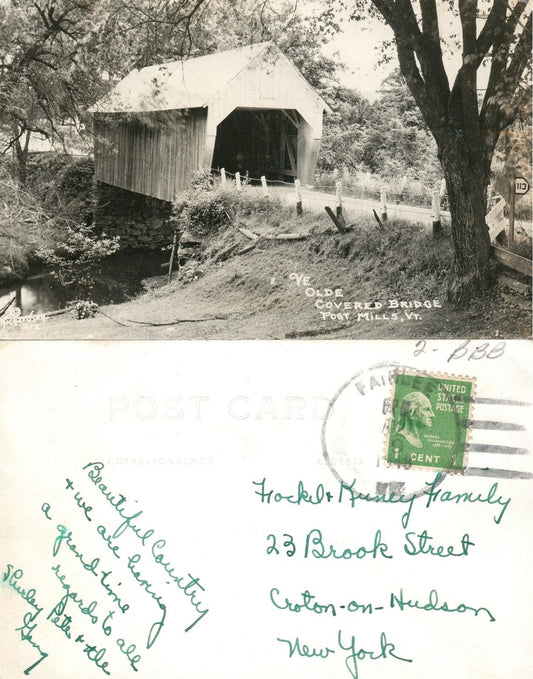 113
YE
OLDE
COVERED BRIDGE
POST MILLS, VT.
2- BBB
FAIRLEE
UNITED
STATES
POSTAGE
GEORGE
WASHINGTON
1 CENT
POST CARD
CORRESPONDENCE
ADDRESS
Beautiful Country
+ we are having
a grand time
regards to all
Shirley Pete + the
Gang
Hockel + Kuney Family
23 Brook Street
Croton-on-Hudson
New York